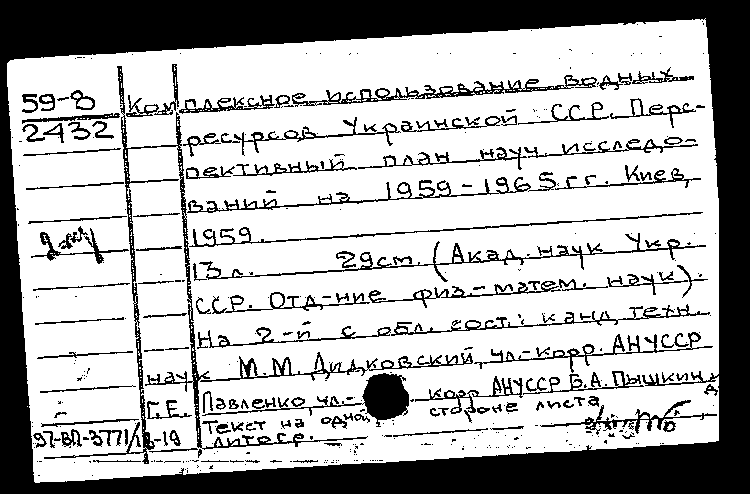 59-8 Комплексное использование водных
2432 ресурсов Украинской ССР. Перс-
пективный план науч. исследо-
ваний на 1959-1965 гг. Киев,
1959.
13 л. 29 см. (Акад. наук Укр.
ССР. Отд-ние физ.-матем. наук).
На 2-й с обл. сост.: канд. техн.
наук М.М. Дидковский, чл-корр. АНУССР
Г.Е. Павленко, чл.-корр АНУССР В.А. Пышкин
Текст на одной стороне листа
литогр.